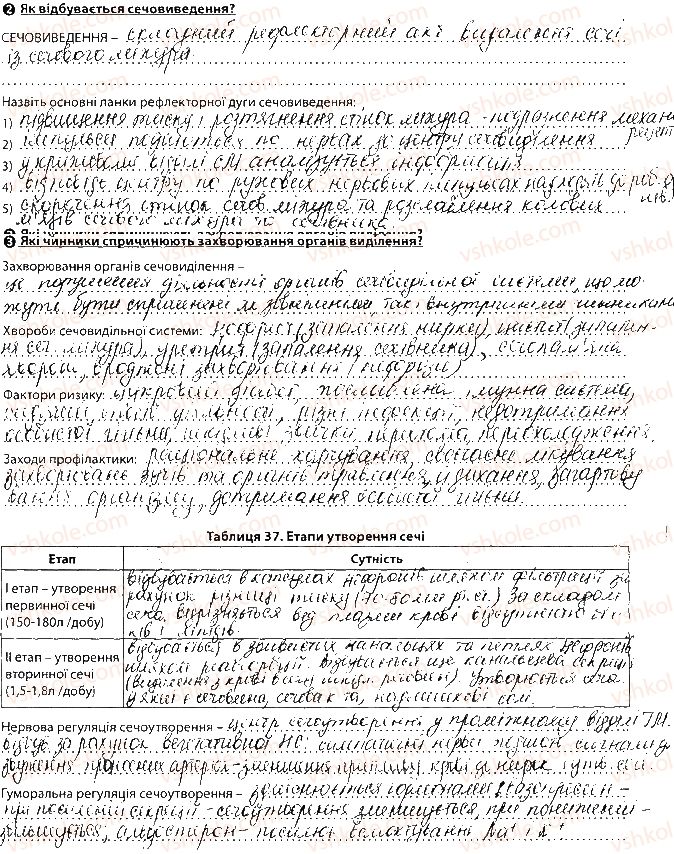 2 Як відбувається сечовиведення?
СЕЧОВИВЕДЕННЯ – складний рефлекторний акт видалення сечі
із сечового міхура
Назвіть основні ланки рефлекторної дуги сечовиведення:
1) підвищення тиску і розтягнення стінок міхура - подразнення механо
рецеп
2) імпульси подаються по нервах до центру сечовиділення
3) у крижовому відділі СМ аналізується інформація
4) відповідь центру по рухових нервових імпульсах надходять до
5) скорочення стінок сечов. міхура та розслаблення колових
м'язів сечового міхура та сечівника
3 Які чинники спричинюють захворювання органів виділення?
Захворювання органів сечовиділення –
це порушення діяльності органів сечовидільної системи, що мо-
жуть бути спричинені як зовнішніми, так і внутрішніми чинниками
Хвороби сечовидільної системи: нефрит (запалення нирки), цистит (запален-
ня сеч. міхура), уретрит (запалення сечівника), сечокам'яна
хвороба, вроджені захворювання
Фактори ризику: цукровий діабет, послаблена імунна система,
різні інфекції, недотримання
особистої гігієни, шкідливі звички, переохолодження
Заходи профілактики: раціональне харчування, своєчасне лікування
захворювань зубів та органів травлення, дихання, загартову
вання організму, дотримання особистої гігієни.
Таблиця 37. Етапи утворення сечі
Етап Сутність
І етап – утворення первинної сечі (150-180л /добу)
відбувається в капсулах нефронів шляхом фільтрації за
рахунок різниці тиску (70 болм рт.ст.) За складом
сеча відрізняється від плазми крові відсутністю біл
ків і ліпідів.
ІІ етап – утворення вторинної сечі (1,5-1,8л /добу)
відбувається в звивистих канальцях та петлях нефронів
шляхом реабсорбції. Відбувається ще канальцева секреція
(виділення з крові в сечу шкідл. речовин). Утворюється сеча
у якій є сечовина, сечова к-та, надлишкові солі.
Нервова регуляція сечоутворення – центр сечоутворення у проміжному відділі ГМ
відбув. за рахунок вегетативної НС: симпатичні нерви
звуження приносних артерій - зменшення припливу крові до нирок
Гуморальна регуляція сечоутворення – здійснюється гормонами: вазопресин -
при посиленій секреції - сечоутворення зменшується, при пониженій -
збільшується, альдостерон - посилює всмоктування Na⁺ і K⁺